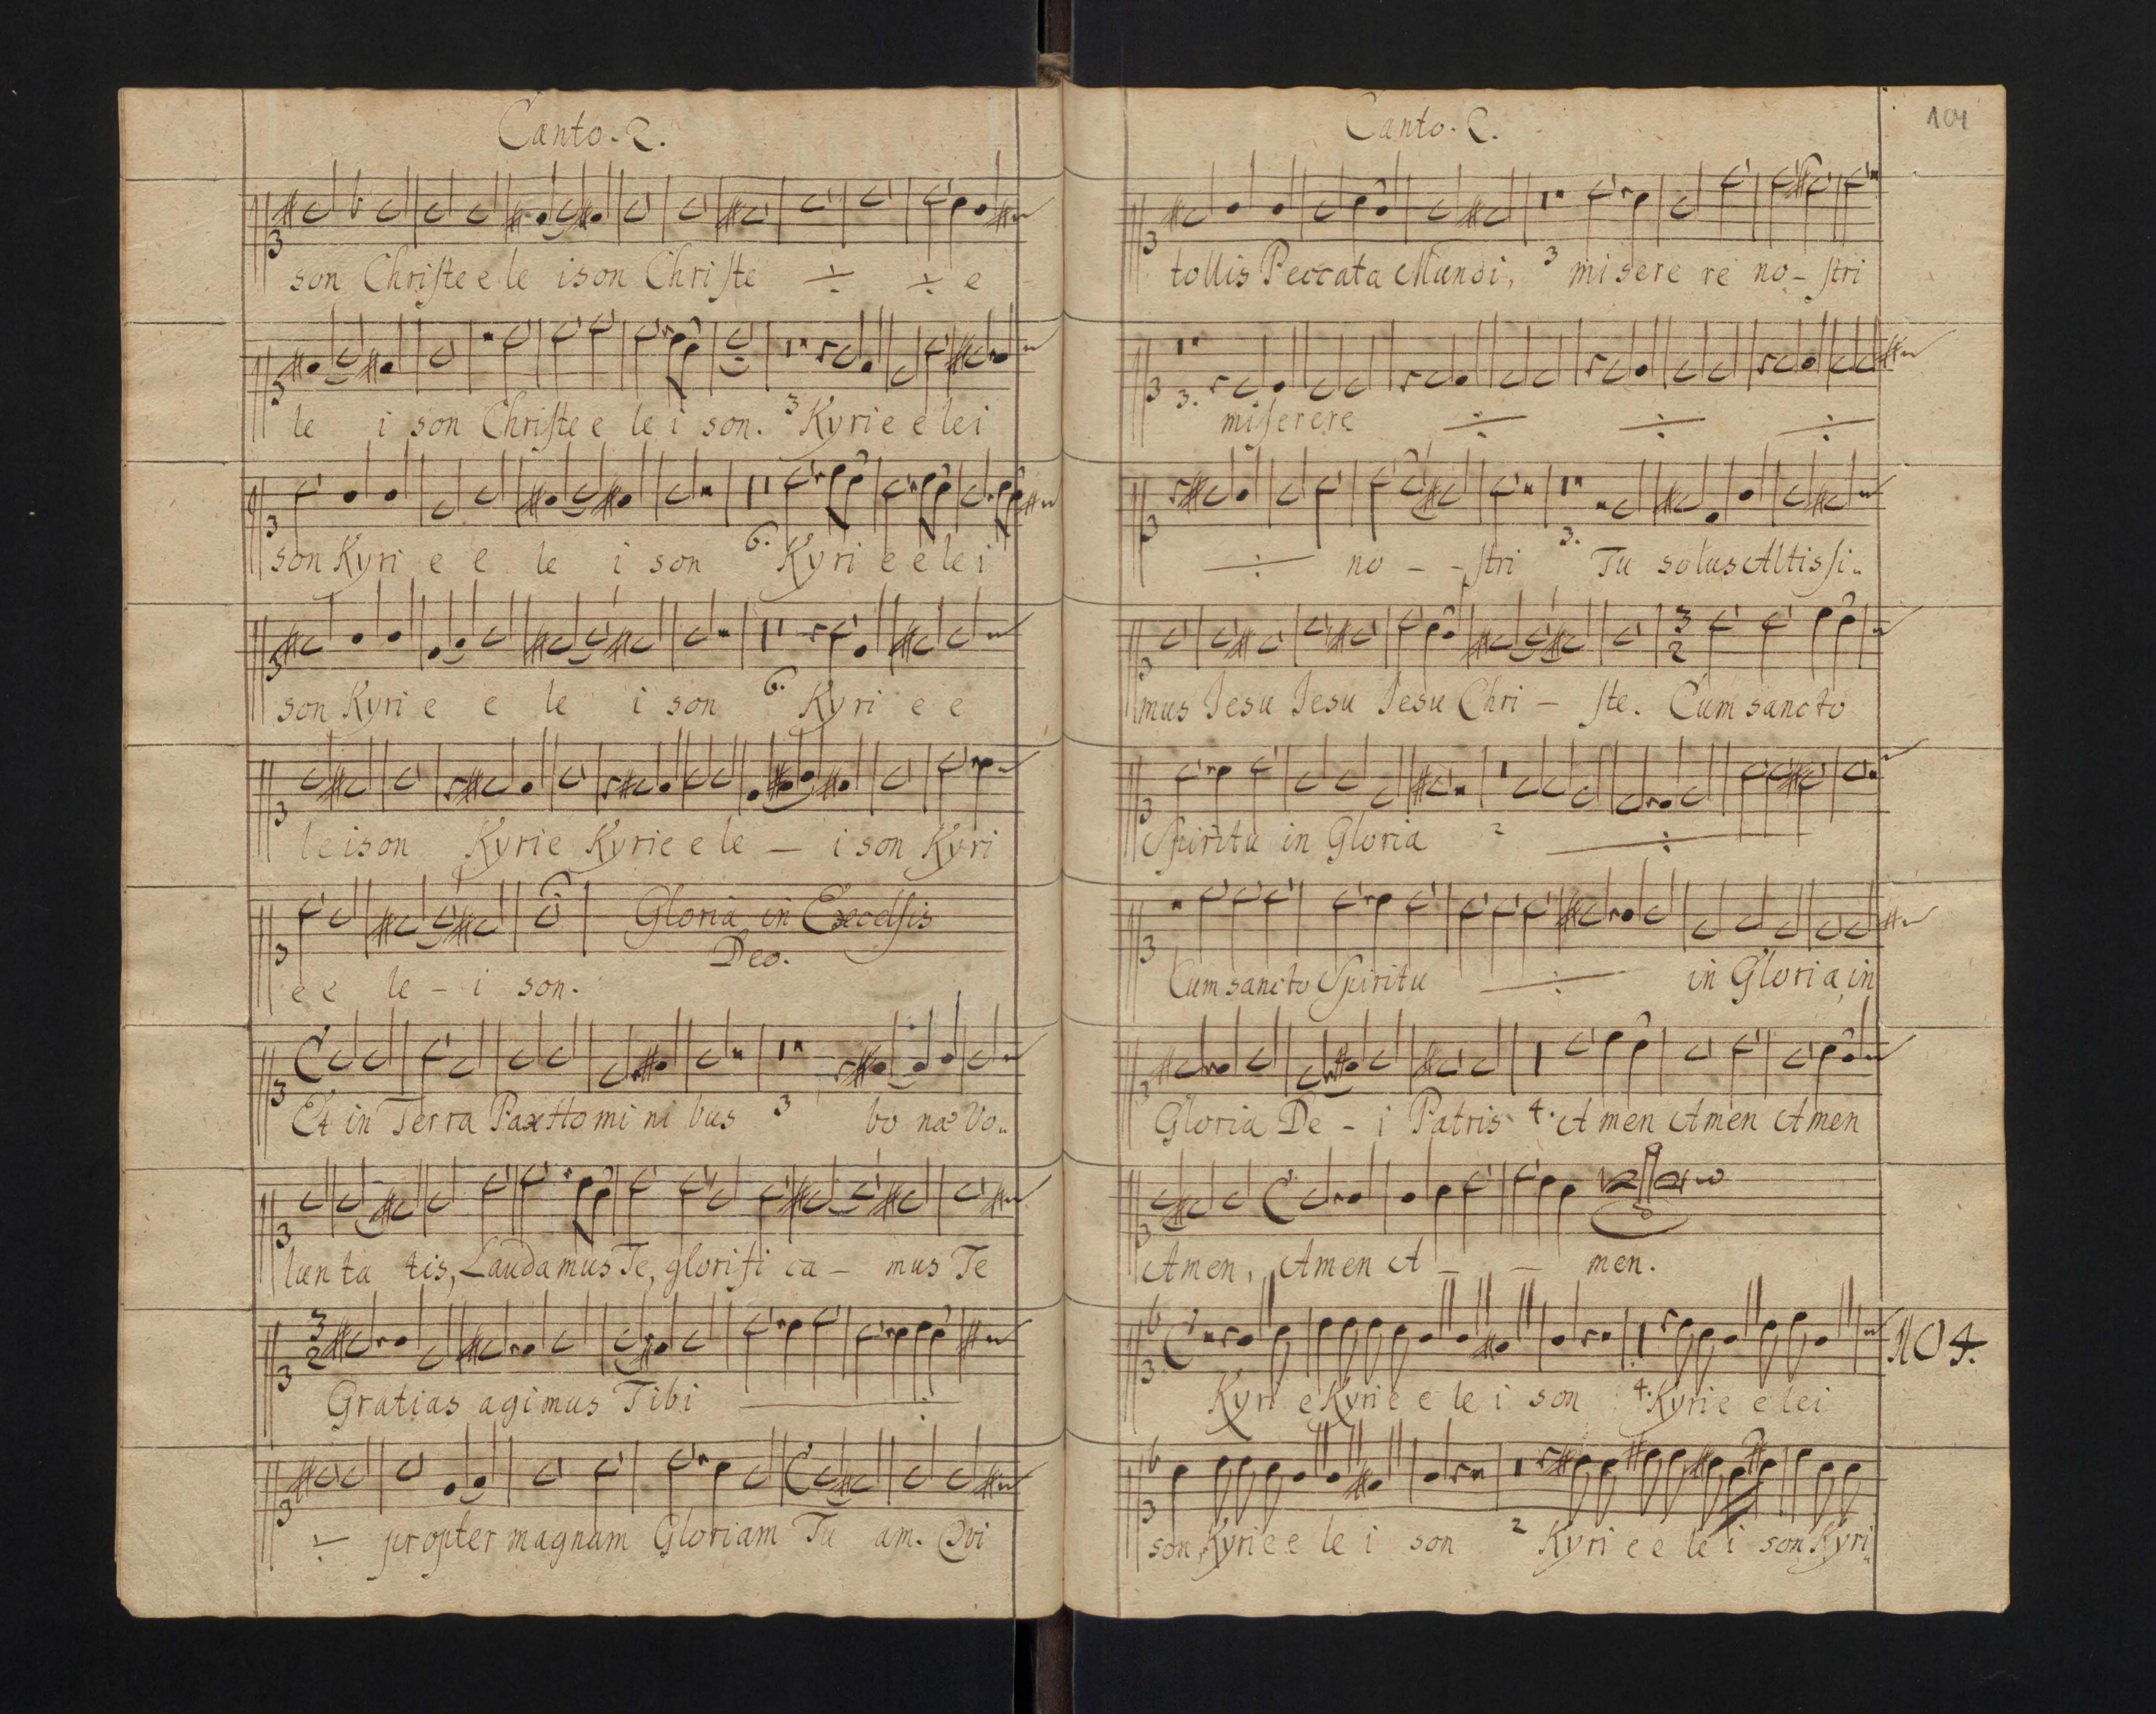 Canto. 2.
son Christe e le ison Christe ÷ ÷ e
le i son Christe e le i son. 3 Kyrie e lei
son Kyri e e le i son 6. Kyri e e le i
son Kyri e e le i son 6. Kyri e e
leison Kyrie Kyrie e le – i son Kyri
Gloria in Excelsis
Deo.
e e le – i son.
Et in Terra Pax Homi ni bus 3 bo næ Vo..
lun ta tis, Laudamus Te, glorifi ca – mus Te
3
2
Gratias agimus Tibi ÷
÷ propter magnam Gloriam Tu am. Qui
Canto. 2.
101
tollis Peccata Mundi, 3 misere re no – stri
3. miserere ÷ ÷ ÷
÷ no – – stri 3. Tu solus Altissi..
3
2
mus Jesu Jesu Jesu Chri – ste. Cum sancto
Spiritu in Gloria 2 ÷
Cum sancto Spiritu ÷ in Gloria, in
Gloria De – i Patris 4. Amen Amen Amen
Amen, Amen A – – men.
104.
Kyri e Kyrie e le i son 4. Kyrie e lei
son, Kyrie e le i son 2 Kyri e e le i son Kyri..